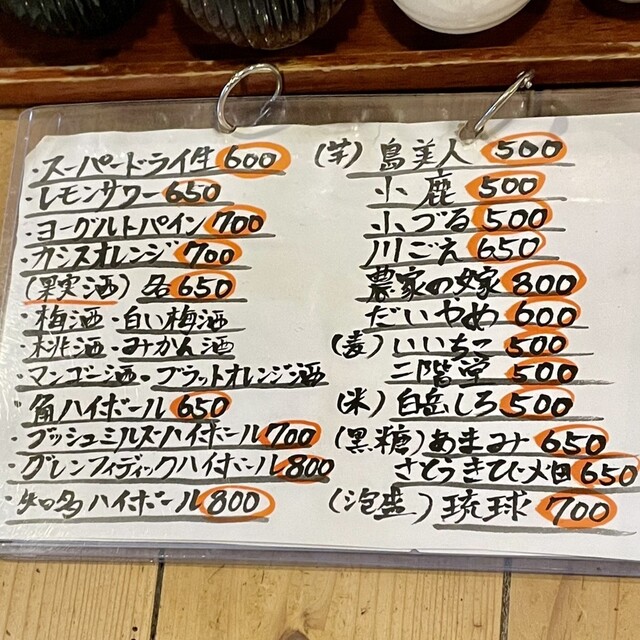 ・スーパードライ生 600
・レモンサワー 650
・ヨーグルトパイン 700
・カシスオレンジ 700
(果実酒) 各650
・梅酒・白い梅酒
・桃酒・みかん酒
・マンゴー酒・ブラットオレンジ酒
・角ハイボール 650
・ブッシュミルズハイボール 700
・グレンフィディックハイボール 800
・知多ハイボール 800
(芋) 島美人 500
小鹿 500
小づる 500
川ごえ 650
農家の嫁 800
だいやめ 600
(麦) いいちこ 500
二階堂 500
(米) 白岳しろ 500
(黒糖) あまみ 650
さとうきび畑 650
(泡盛) 琉球 700